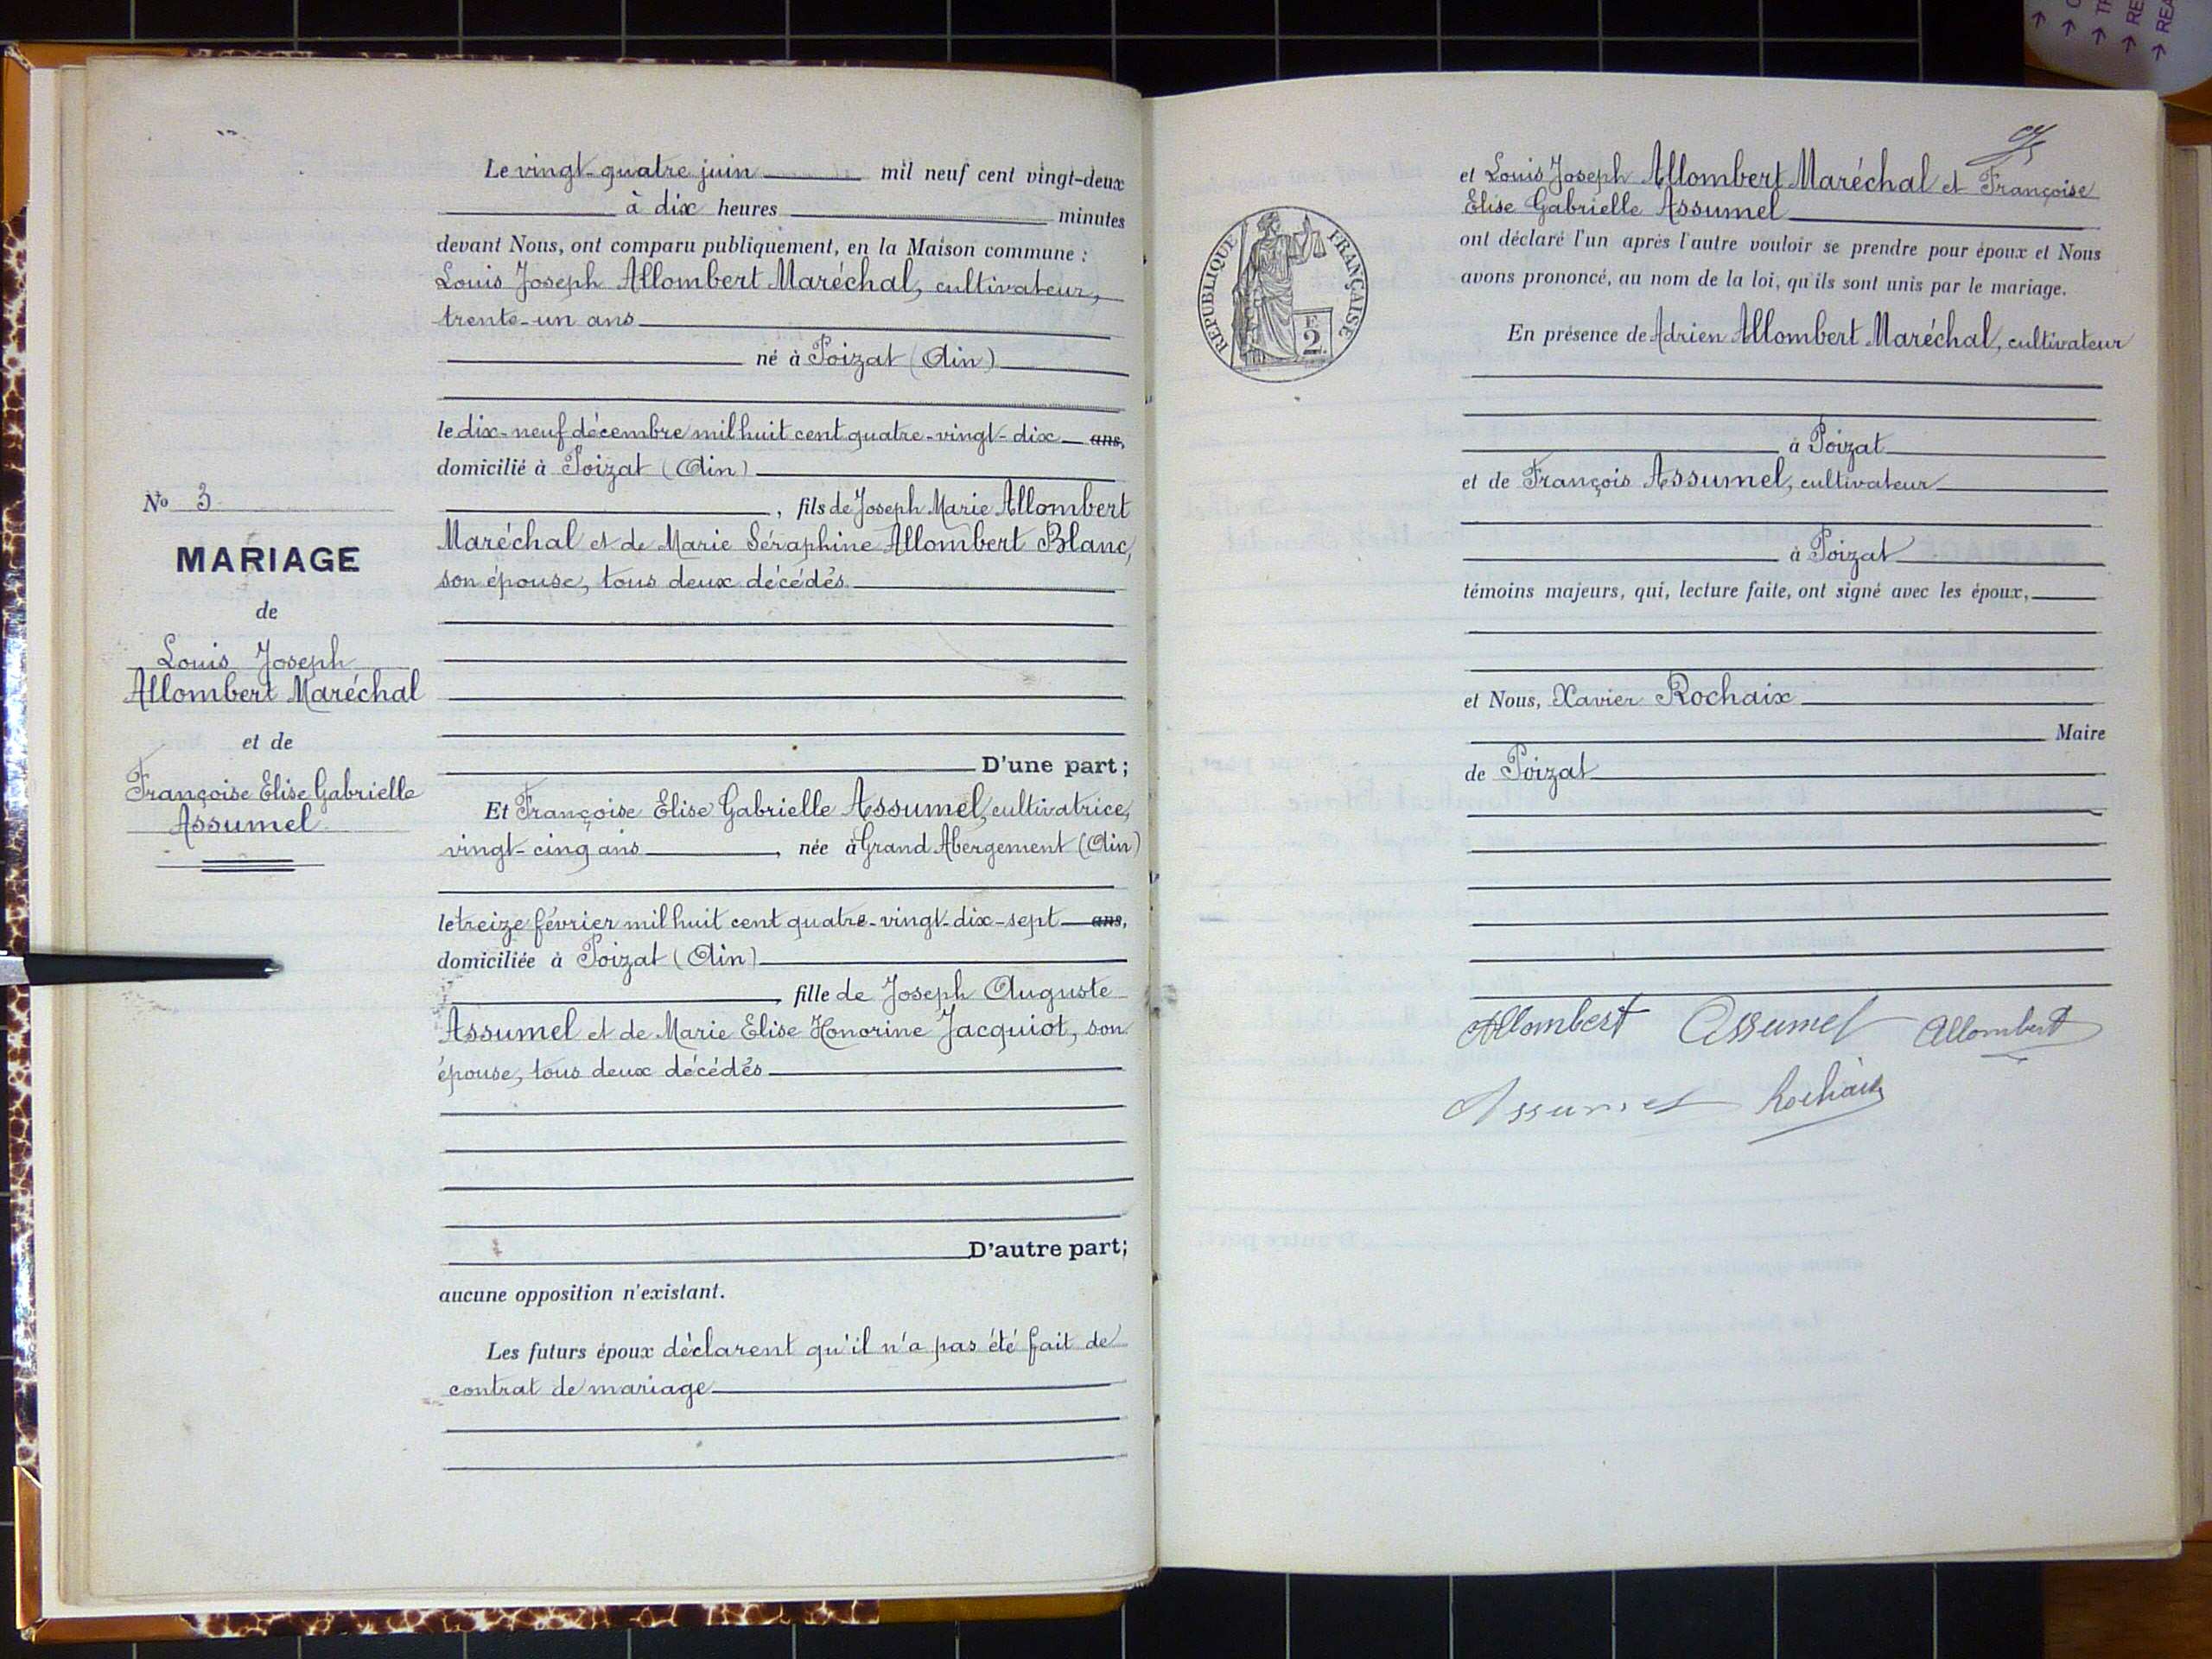 Le vingt-quatre juin mil neuf cent vingt-deux
à dix heures minutes
devant Nous, ont comparu publiquement, en la Maison commune :
Louis Joseph Allombert Maréchal, cultivateur,
trente-un ans
né à Poizat (Ain)
le dix-neuf décembre mil huit cent quatre-vingt-dix ans,
domicilié à Poizat (Ain)
, fils de Joseph Marie Allombert
Maréchal et de Marie Séraphine Allombert Blanc,
son épouse, tous deux décédés
No 3
MARIAGE
de
Louis Joseph
Allombert Maréchal
et de
Françoise Elise Gabrielle
Assumel
D'une part ;
Et Françoise Elise Gabrielle Assumel, cultivatrice,
vingt-cinq ans , née à Grand Abergement (Ain)
le treize février mil huit cent quatre-vingt-dix-sept ans,
domiciliée à Poizat (Ain)
, fille de Joseph Auguste
Assumel et de Marie Elise Honorine Jacquiot, son
épouse, tous deux décédés
D'autre part ;
aucune opposition n'existant.
Les futurs époux déclarent qu'il n'a pas été fait de
contrat de mariage
et Louis Joseph Allombert Maréchal et Françoise
Elise Gabrielle Assumel
ont déclaré l'un après l'autre vouloir se prendre pour époux et Nous
avons prononcé, au nom de la loi, qu'ils sont unis par le mariage.
REPUBLIQUE FRANÇAISE
F.
2.
En présence de Adrien Allombert Maréchal, cultivateur
à Poizat
et de François Assumel, cultivateur
à Poizat
témoins majeurs, qui, lecture faite, ont signé avec les époux,
et Nous, Xavier Rochaix
Maire
de Poizat
Allombert Assumel Allombert
Assumel Rochaix